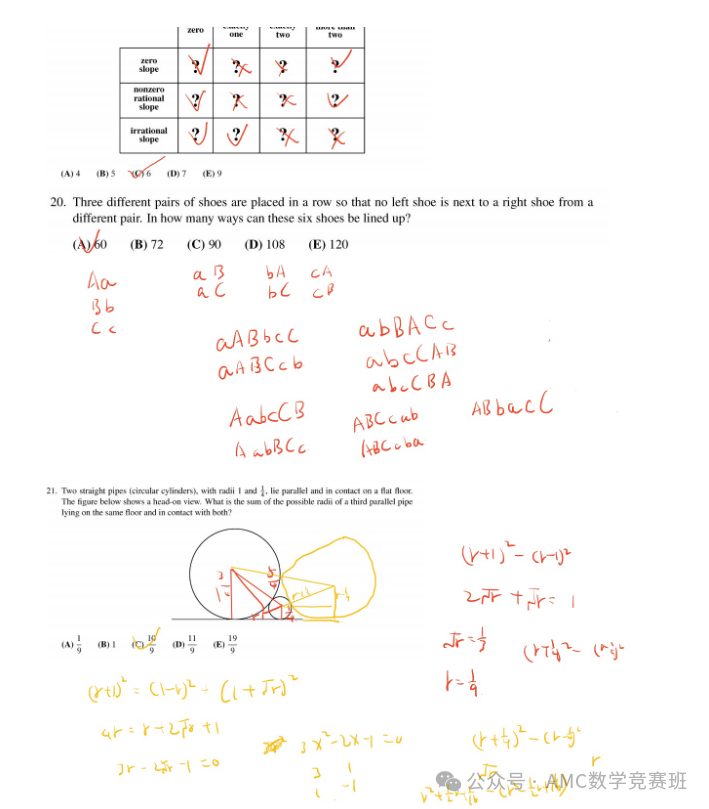 zero
one
two
two
zero
slope
? ? ? ?
nonzero
rational
slope
? ? ? ?
irrational
slope
? ? ? ?
(A) 4 (B) 5 (C) 6 (D) 7 (E) 9
20. Three different pairs of shoes are placed in a row so that no left shoe is next to a right shoe from a
different pair. In how many ways can these six shoes be lined up?
(A) 60 (B) 72 (C) 90 (D) 108 (E) 120
Aa
Bb
Cc
aB bA cA
aC bC cB
aABbcC
aABCcb
abBACc
abcCAB
abcCBA
AabcCB
AabBCc
ABCcab
ABCcba
ABbacC
21. Two straight pipes (circular cylinders), with radii 1 and 1/4, lie parallel and in contact on a flat floor.
The figure below shows a head-on view. What is the sum of the possible radii of a third parallel pipe
lying on the same floor and in contact with both?
(A) 1/9 (B) 1 (C) 10/9 (D) 11/9 (E) 19/9
(r+1)² - (r-1)²
2√r + √r = 1
√r = 1/3
r = 1/9
(r+1)² = (1-r)² + (1+√r)²
4r = r + 2√r + 1
3r - 2√r - 1 = 0
3x² - 2x - 1 = 0
3 1
1 -1
(r+1/4)² - (r-1/4)²
公众号 · AMC数学竞赛班